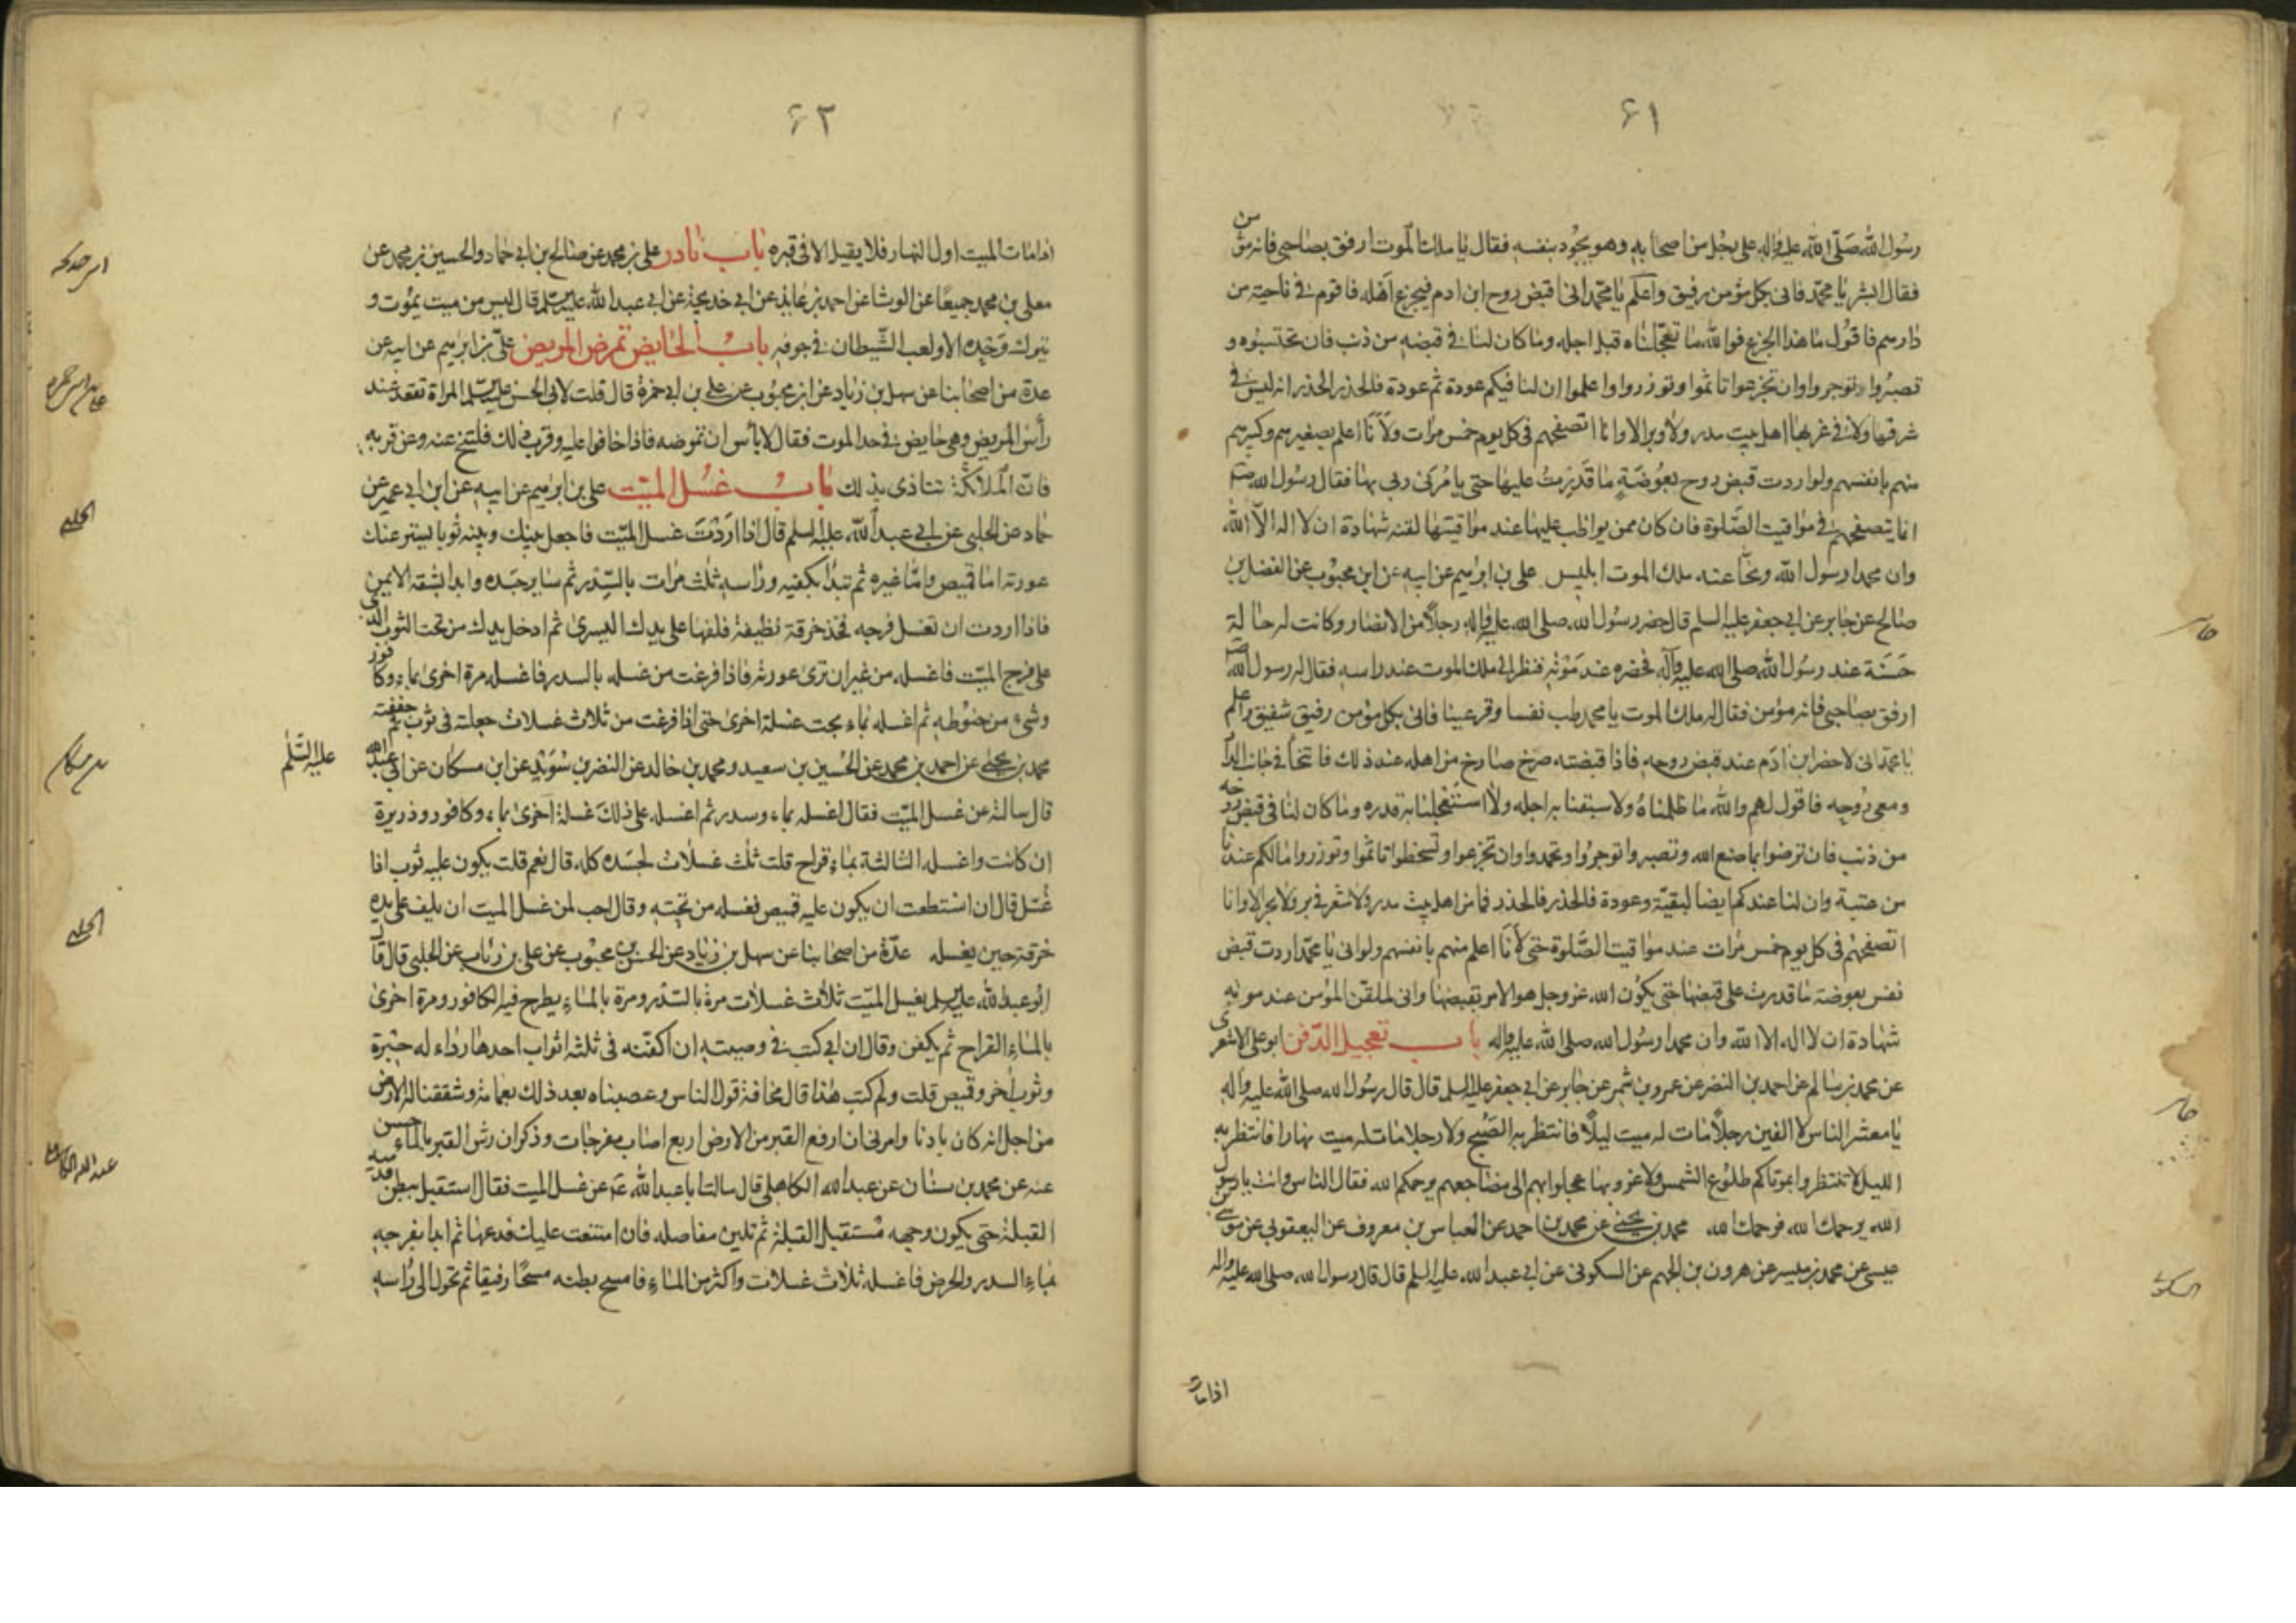 ٦١
رسول الله صلى الله عليه واله على رجل من اصحابه وهو يجود بنفسه فقال يا ملك الموت ارفق بصاحبي فانه مؤمن
فقال ابشر يا محمد فانى بكل مؤمن رفيق واعلم يا محمد انى اقبض روح ابن ادم فيجزع اهله فاقوم فى ناحية من
دارهم فاقول ما هذا الجزع فوالله ما تعجلناه قبل اجله وما كان لنا فى قبضه من ذنب فان تحتسبوه و
تصبروا توجروا وان تجزعوا تاثموا وتوزروا واعلموا ان لنا فيكم عودة ثم عودة فالحذر الحذر انه ليس فى
شرقها ولا فى غربها اهل بيت مدر ولا وبر الا وانا اتصفحهم فى كل يوم خمس مرات ولانا اعلم بصغيرهم وكبيرهم
منهم بانفسهم ولو اردت قبض روح بعوضة ما قدرت عليها حتى يامرنى ربى بها فقال رسول الله
انما يتصفحهم فى مواقيت الصلوة فان كان ممن يواظب عليها عند مواقيتها لقنه شهادة ان لا اله الا الله
وان محمدا رسول الله ونحا عنه ملك الموت ابليس على بن ابرهيم عن ابيه عن ابن محبوب عن الفضل بن
صالح عن جابر عن ابى جعفر عليه السلم قال حضر رسول الله صلى الله عليه واله رجلا من الانصار وكانت له حالة
حسنة عند رسول الله صلى الله عليه وآله فحضره عند موته فنظر الى ملك الموت عند راسه فقال له رسول الله
ارفق بصاحبى فانه مؤمن فقال له ملك الموت يا محمد طب نفسا وقر عينا فانى بكل مؤمن رفيق شفيق واعلم
يا محمد انى لاحضر ابن ادم عند قبض روحه فاذا قبضته صرخ صارخ من اهله عند ذلك فاتنحا فى جانب الدا
ومعى روحه فاقول لهم والله ما ظلمناه ولا سبقنا به اجله ولا استعجلنا به قدره وما كان لنا فى قبض روحه
من ذنب فان ترضوا بما صنع الله وتصبروا توجروا وتحمدوا وان تجزعوا وتسخطوا تاثموا وتوزروا مالكم عندنا
من عتبة وان لنا عندكم ايضا لبقية وعودة فالحذر فالحذر فما من اهل بيت مدر ولا شعر فى بر ولا بحر الا وانا
اتصفحهم فى كل يوم خمس مرات عند مواقيت الصلوة حتى لانا اعلم منهم بانفسهم ولو انى يا محمد اردت قبض
نفس بعوضة ما قدرت على قبضها حتى يكون الله عز وجل هو الامر بقبضها وانى لملقن المؤمن عند موته
شهادة ان لا اله الا الله وان محمدا رسول الله صلى الله عليه واله باب تعجيل الدفن ابو على الاشعرى
عن محمد بن سالم عن احمد بن النضر عن عمرو بن شمر عن جابر عن ابى جعفر عليه السلم قال قال رسول الله صلى الله عليه واله
يا معشر الناس لا الفين رجلا مات له ميت ليلا فانتظر به الصبح ولا رجلا مات له ميت نهارا فانتظر به
الليل لا تنتظروا بموتاكم طلوع الشمس ولا غروبها عجلوا بهم الى مضاجعهم يرحمكم الله فقال الناس وانت يا رسول
الله يرحمك الله فرحمك الله محمد بن يحيى عن محمد بن احمد عن العباس بن معروف عن اليعقوبى عن موسى
عيسى عن محمد بن ميسر عن هرون بن الجهم عن السكونى عن ابى عبد الله عليه السلم قال قال رسول الله صلى الله عليه واله
اذا مات
جابر
جابر
السكونى
٦٢
اذا مات الميت اول النهار فلا يقيل الا فى قبره باب نادر على بن محمد عن صالح بن ابى حماد والحسين بن محمد عن
معلى بن محمد جميعا عن الوشا عن احمد بن عايذ عن ابى خديجة عن ابى عبد الله عليه السلم قال ليس من ميت يموت و
يترك وحده الا ولعب الشيطان فى جوفه باب الحايض تمرض المريض على بن ابرهيم عن ابيه عن
عدة من اصحابنا عن سهل بن زياد عن ابن محبوب عن على بن ابى حمزة قال قلت لابى الحسن عليه السلم المراة تقعد عند
رأس المريض وهى حايض فى حد الموت فقال لا باس ان تمرضه فاذا خافوا عليه وقرب ذلك فلتنح عنه وعن قربه
فان الملائكة تتاذى بذلك باب غسل الميت على بن ابرهيم عن ابيه عن ابن ابى عمير عن
حماد عن الحلبى عن ابى عبد الله عليه السلم قال اذا اردت غسل الميت فاجعل بينك وبينه ثوبا يستر عنك
عورته اما قميص واما غيره ثم تبدأ بكفيه وراسه ثلث مرات بالسدر ثم ساير جسده وابدا بشقه الايمن
فاذا اردت ان تغسل فرجه فخذ خرقة نظيفة فلفها على يدك اليسرى ثم ادخل يدك من تحت الثوب الذى
على فرج الميت فاغسله من غير ان ترى عورته فاذا فرغت من غسله بالسدر فاغسله مرة اخرى بماء وكافور
وشىء من حنوطه ثم اغسله بماء بحت غسلة اخرى حتى اذا فرغت من ثلاث غسلات جعلته فى ثوب ثم جففته
محمد بن يحيى عن احمد بن محمد عن الحسين بن سعيد ومحمد بن خالد عن النضر بن سويد عن ابن مسكان عن ابى عبد الله
عليه السلم
قال سالته عن غسل الميت فقال اغسله بماء وسدر ثم اغسله على ذلك غسلة اخرى بماء وكافور وذريرة
ان كانت واغسله الثالثة بماء قراح قلت ثلث غسلات لجسده كله قال نعم قلت يكون عليه ثوب اذا
غسل قال ان استطعت ان يكون عليه قميص فغسله من تحته وقال احب لمن غسل الميت ان يلف على يده
خرقة حين يغسله عدة من اصحابنا عن سهل بن زياد عن الحسن بن محبوب عن على بن رئاب عن الحلبى قال قال
ابو عبد الله عليه السلم يغسل الميت ثلاث غسلات مرة بالسدر ومرة بالماء يطرح فيه الكافور ومرة اخرى
بالماء القراح ثم يكفن وقال ان ابى كتب فى وصيته ان اكفنه فى ثلثة اثواب احدها رداء له حبرة
وثوب اخر وقميص قلت ولم كتب هذا قال مخافة قول الناس وعصبناه بعد ذلك بعمامة وشققنا له الارض
من اجل انه كان بادنا وامرنى ان ارفع القبر من الارض اربع اصابع مفرجات وذكر ان رش القبر بالماء حسن
عنه عن محمد بن سنان عن عبد الله الكاهلى قال سالت ابا عبد الله عن غسل الميت فقال استقبل ببطن قدميه
القبلة حتى يكون وجهه مستقبل القبلة ثم تلين مفاصله فان امتنعت عليك فدعها ثم ابدا بفرجه
بماء السدر والحرض فاغسله ثلاث غسلات واكثر من الماء فامسح بطنه مسحا رفيقا ثم تحول الى راسه
الحلبى
الحلبى
عبد الله الكاهلى